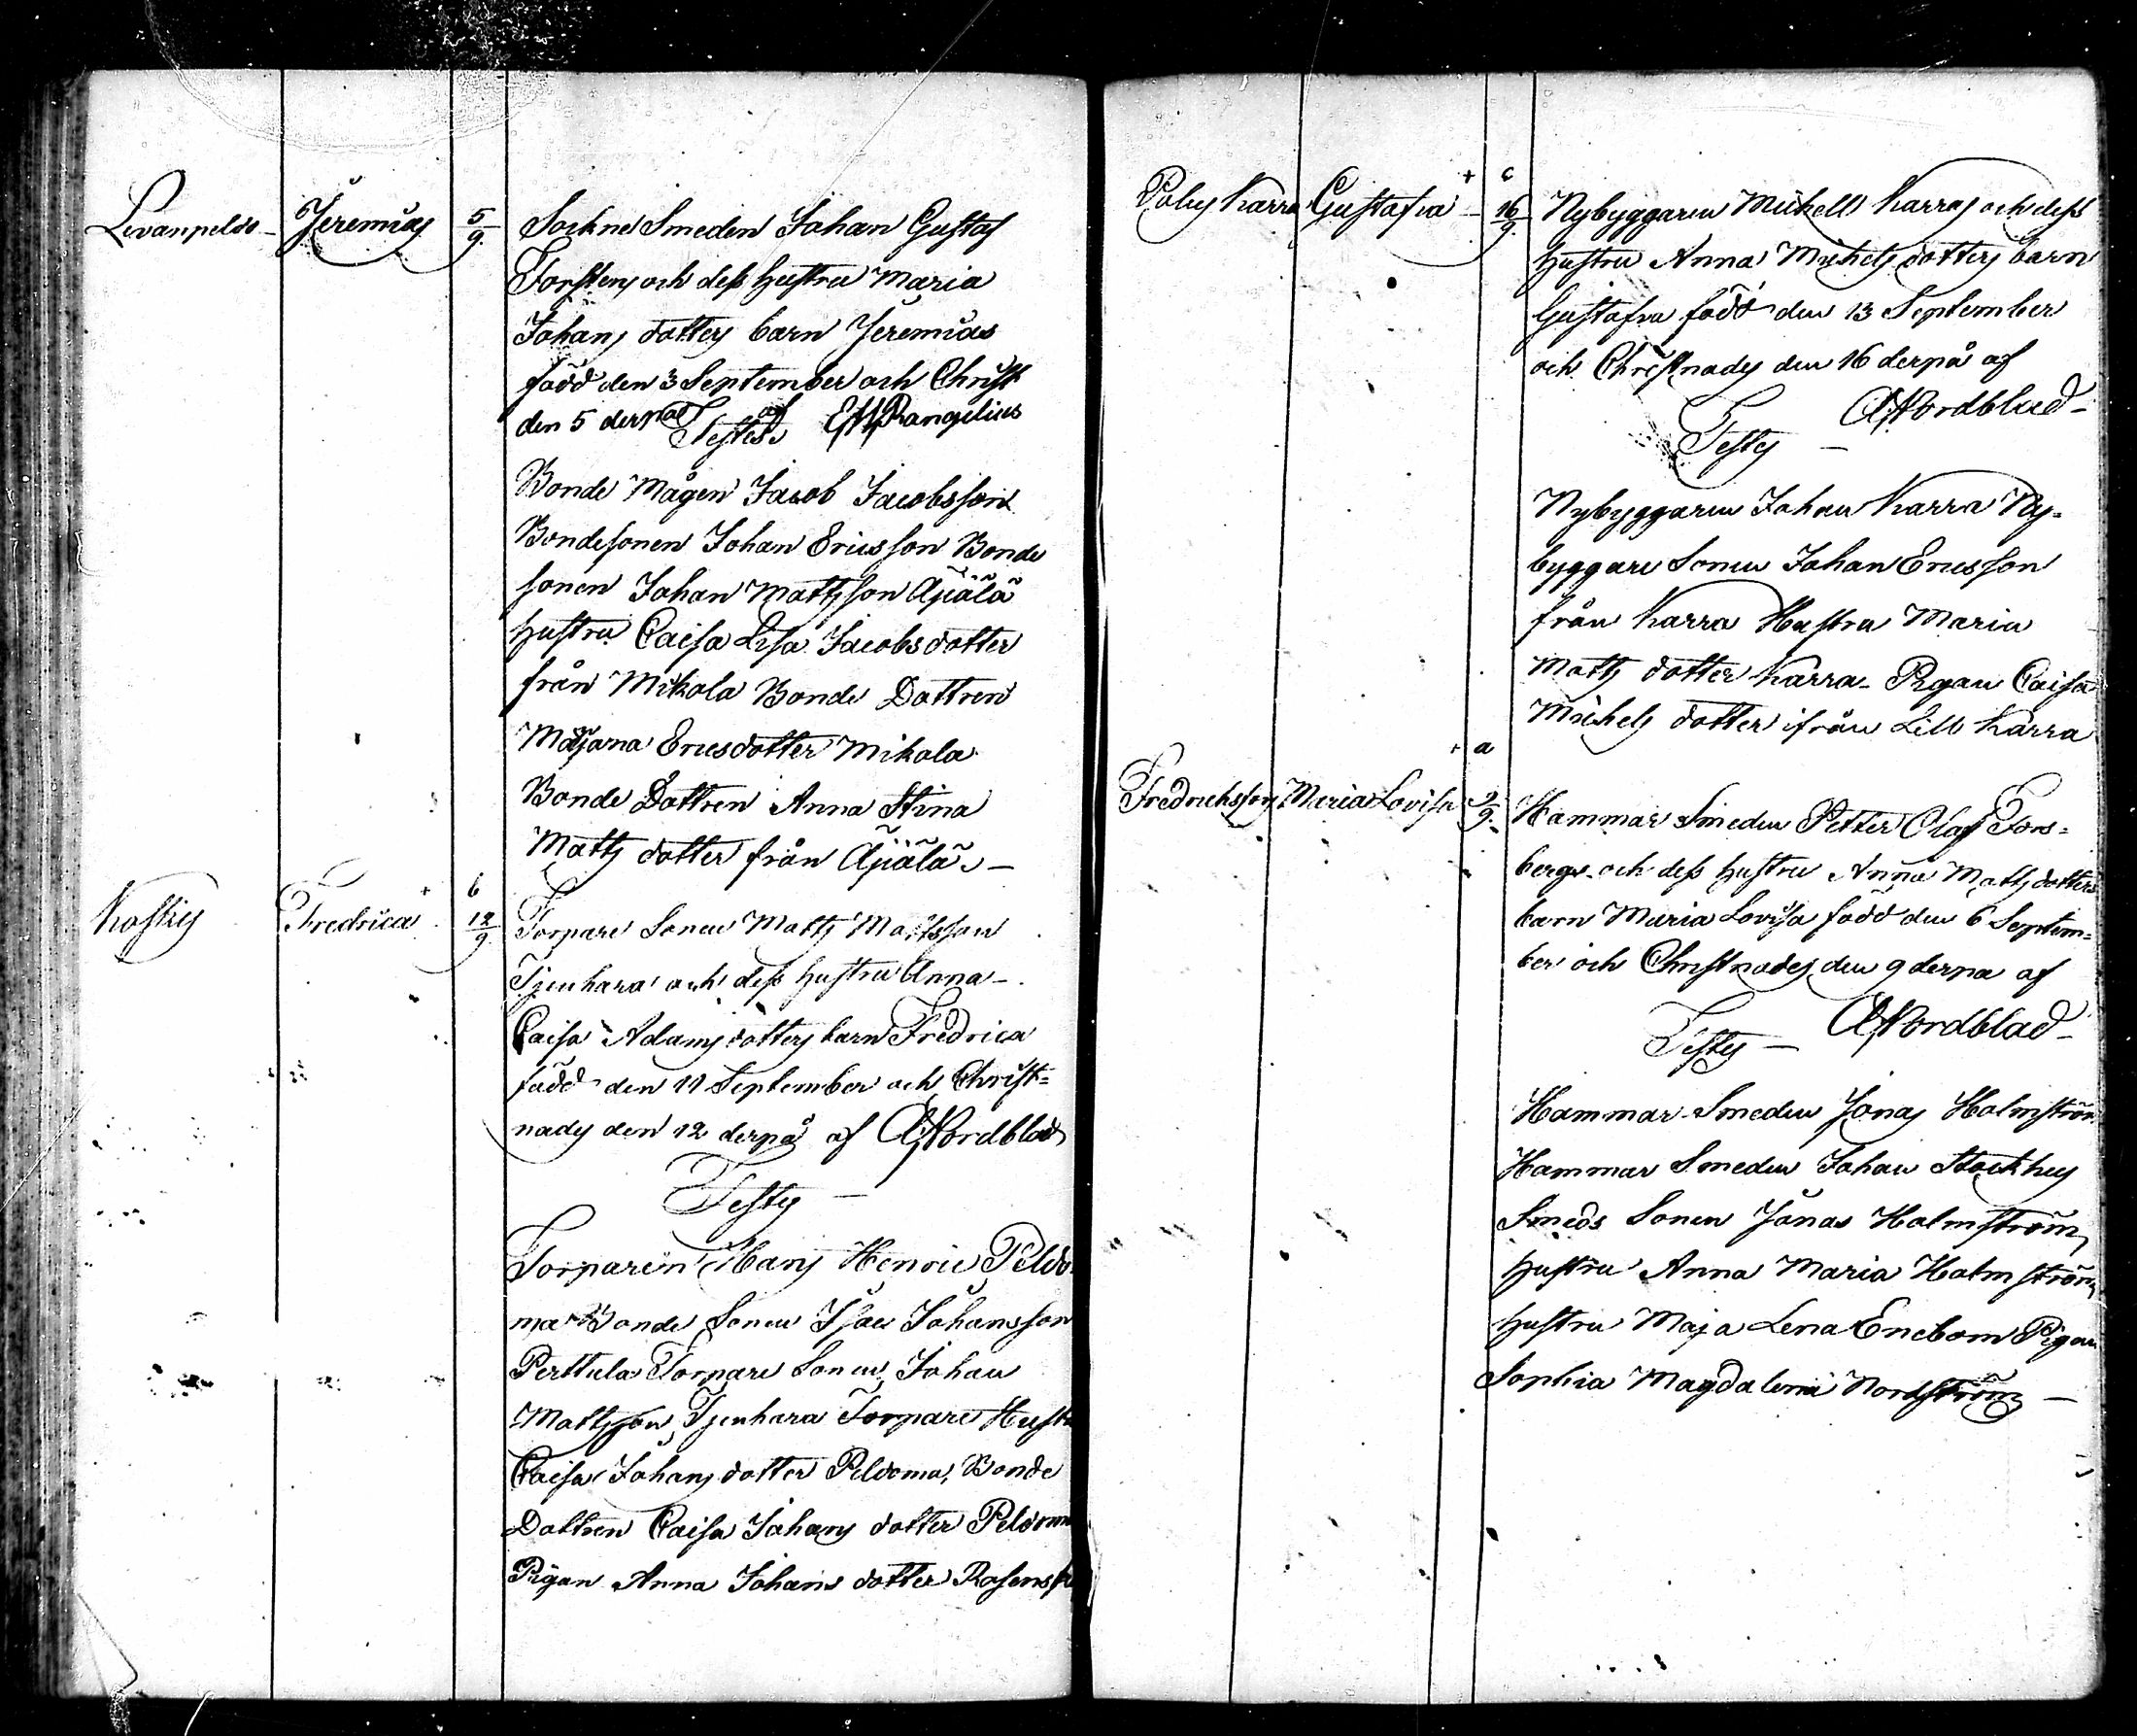 Levanpeldo - Jeremias 5/9. Sockne Smeden Johan Gustaf
Forstens och dess hustru Maria
Johans dotters barn Jeremias
född den 3 September och Christ
den 5 derpå af EM Rangelius
Testes
Bonde Mågen Jacob Jacobsson
Bondesonen Johan Ericsson Bonde
sonen Johan Mattsson Äjälä
hustru Caisa Lisa Jacobsdotter
från Mikola Bonde Dottren
Majana Ericsdotter Mikola
Bonde Dottren Anna Stina
Matts dotter från Äjälä -
Koskis Fredrica + b 12/9 Torpare Sonen Matts Mattsson
Tjenhara och dess hustru Anna -
Caisa Adams dotters barn Fredrica
född den 11 September och Christ=
nades den 12 derpå af A Nordblad
Testes -
Torparen Hans Henric Peldo
ma Bonde Sonen Isac Johansson
Perttula Torpare Sonen Johan
Mattsson Tjenhara Torpare Hustr
Caisa Johans dotter Peldoma, Bonde
Dottren Caisa Johans dotter Peldoma
Pigan Anna Johans dotter
Karra Gustafva + c 16/9. Nybyggaren Michell Karras och dess
hustru Anna Michels dotters barn
Gustafva född den 13 September
och Christnades den 16 derpå af
A Nordblad -
Testes -
Nybyggaren Johan Karra Ny=
byggare Sonen Johan Ericsson
från Karra Hustru Maria
Matts dotter Karra - Pigan Caisa
Michels dotter ifrån Lill Karra
Fredrichsfors Maria Lovisa + a 9/9. Hammar Smeden Petter Olof Fors=
bergs och dess hustru Anna Matts dotters
barn Maria Lovisa född den 6 Septem=
ber och Christnades den 9 derpa af
A Nordblad -
Testes -
Hammar Smeden Jonas Holmström
Hammar Smeden Johan
Smeds Sonen Jonas Holmström,
hustru Anna Maria Holmström,
hustru Maja Lena Enebom Pigan
Sophia Magdalena Nordström -